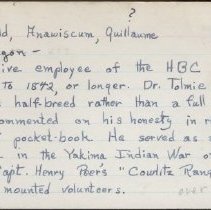 ?
ld, Anawiscum, Quillaume
gon -
ive employee of the HBC
to 1842, or longer. Dr. Tolmie
s half-breed rather than a full
ommented on his honesty in r
pocket-book. He served as
in the Yakima Indian War o
Capt. Henry Peers "Cowlitz Rang
mounted volunteers.
over